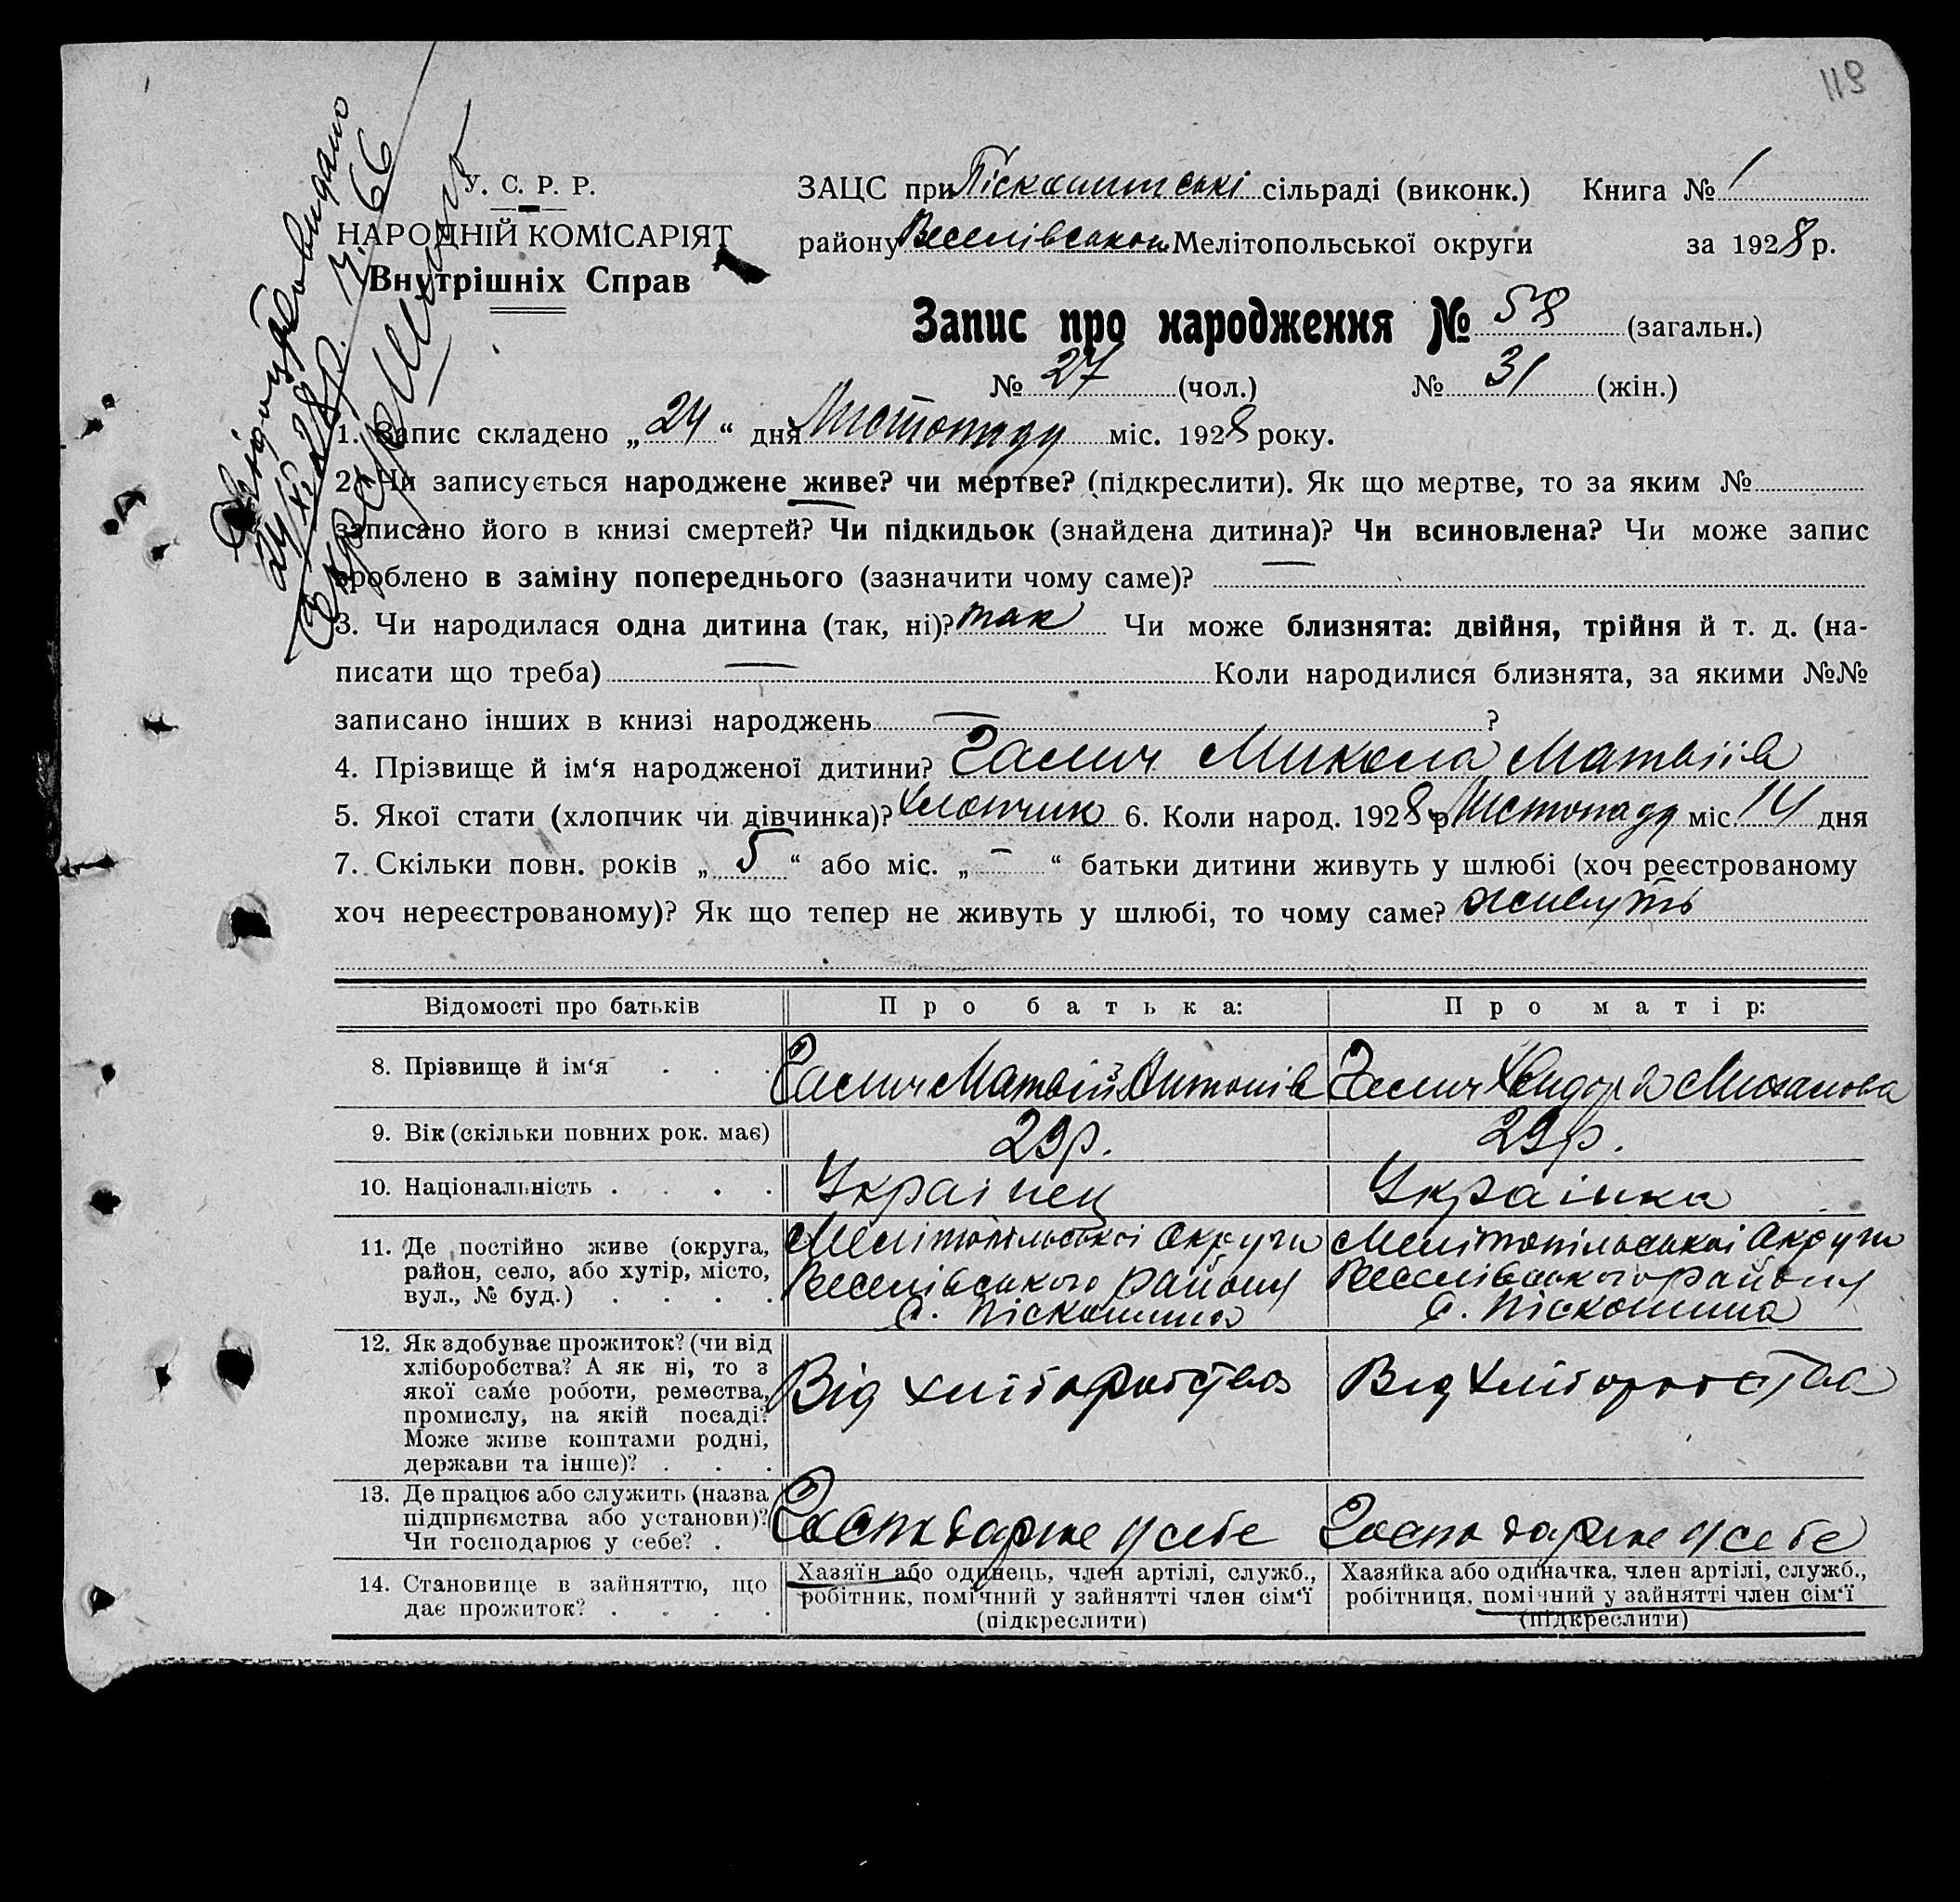 119
Свідоцтво видано
24/XI 28р. № 66
У. С. Р. Р.
НАРОДНІЙ КОМІСАРІЯТ
Внутрішніх Справ
ЗАЦС при Піскошинські сільраді (виконк.) Книга № 1
району Веселівського Мелітопольської округи за 1928 р.
Запис про народження № 58 (загальн.)
№ 27 (чол.) № 31 (жін.)
1. Запис складено „24“ дня Листопаду міс. 1928 року.
2. Чи записується народжене живе? чи мертве? (підкреслити). Як що мертве, то за яким №
записано його в книзі смертей? Чи підкидьок (знайдена дитина)? Чи всиновлена? Чи може запис
зроблено в заміну попереднього (зазначити чому саме)? —
3. Чи народилася одна дитина (так, ні)? так Чи може близнята: двійня, трійня й т. д. (на-
писати що треба) — Коли народилися близнята, за якими №№
записано інших в книзі народжень — ?
4. Прізвище й ім‘я народженої дитини? Галич Микола Матвіїв
5. Якої стати (хлопчик чи дівчинка)? хлопчик 6. Коли народ. 1928 р Листопаду міс. 14 дня
7. Скільки повн. років „5“ або міс. „–“ батьки дитини живуть у шлюбі (хоч реєстрованому
хоч нереєстрованому)? Як що тепер не живуть у шлюбі, то чому саме? живуть
Відомості про батьків Про батька: Про матір:
8. Прізвище й ім‘я . . . Галич Матвій Антонів Галич Михалова
9. Вік (скільки повних рок. має) 29р. 29р.
10. Національність . . . . Українец Українка
11. Де постійно живе (округа, район, село, або хутір, місто, вул., № буд.) . . . . Мелітопільської Округи Веселівського району с. Піскошина Мелітопільської Округи Веселівського району с. Піскошина
12. Як здобуває прожиток? (чи від хліборобства? А як ні, то з якої саме роботи, ремества, промислу, на якій посаді? Може живе коштами родні, держави та інше)? . . . Від хліборобства Від хліборобства
13. Де працює або служить (назва підприємства або установи)? Чи господарює у себе? . . Господарює у себе Господарює у себе
14. Становище в зайняттю, що дає прожиток? . . . . Хазяїн або одинець, член артілі, служб., робітник, помічний у зайнятті член сім‘ї (підкреслити) Хазяйка або одиначка, член артілі, служб., робітниця, помічний у зайнятті член сім‘ї (підкреслити)